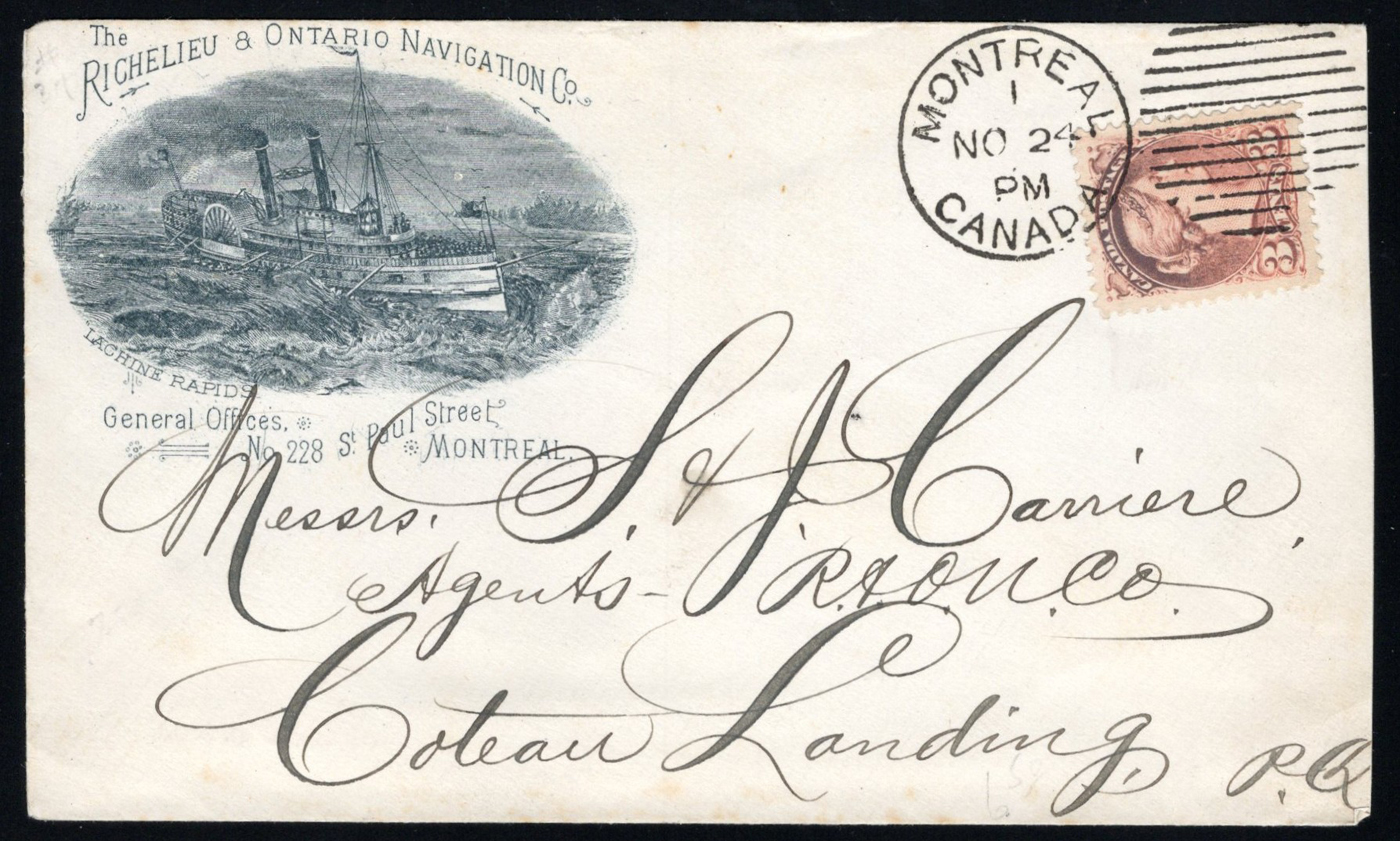 The
RICHELIEU & ONTARIO NAVIGATION Co.
LACHINE RAPIDS
General Offices,
No. 228 St. Paul Street
MONTREAL.
MONTREAL
1
NO 24
PM
CANADA
3 3
Messrs. S. & J. Carriere,
Agents - R. & O. N. Co.
Coteau Landing,
P.Q